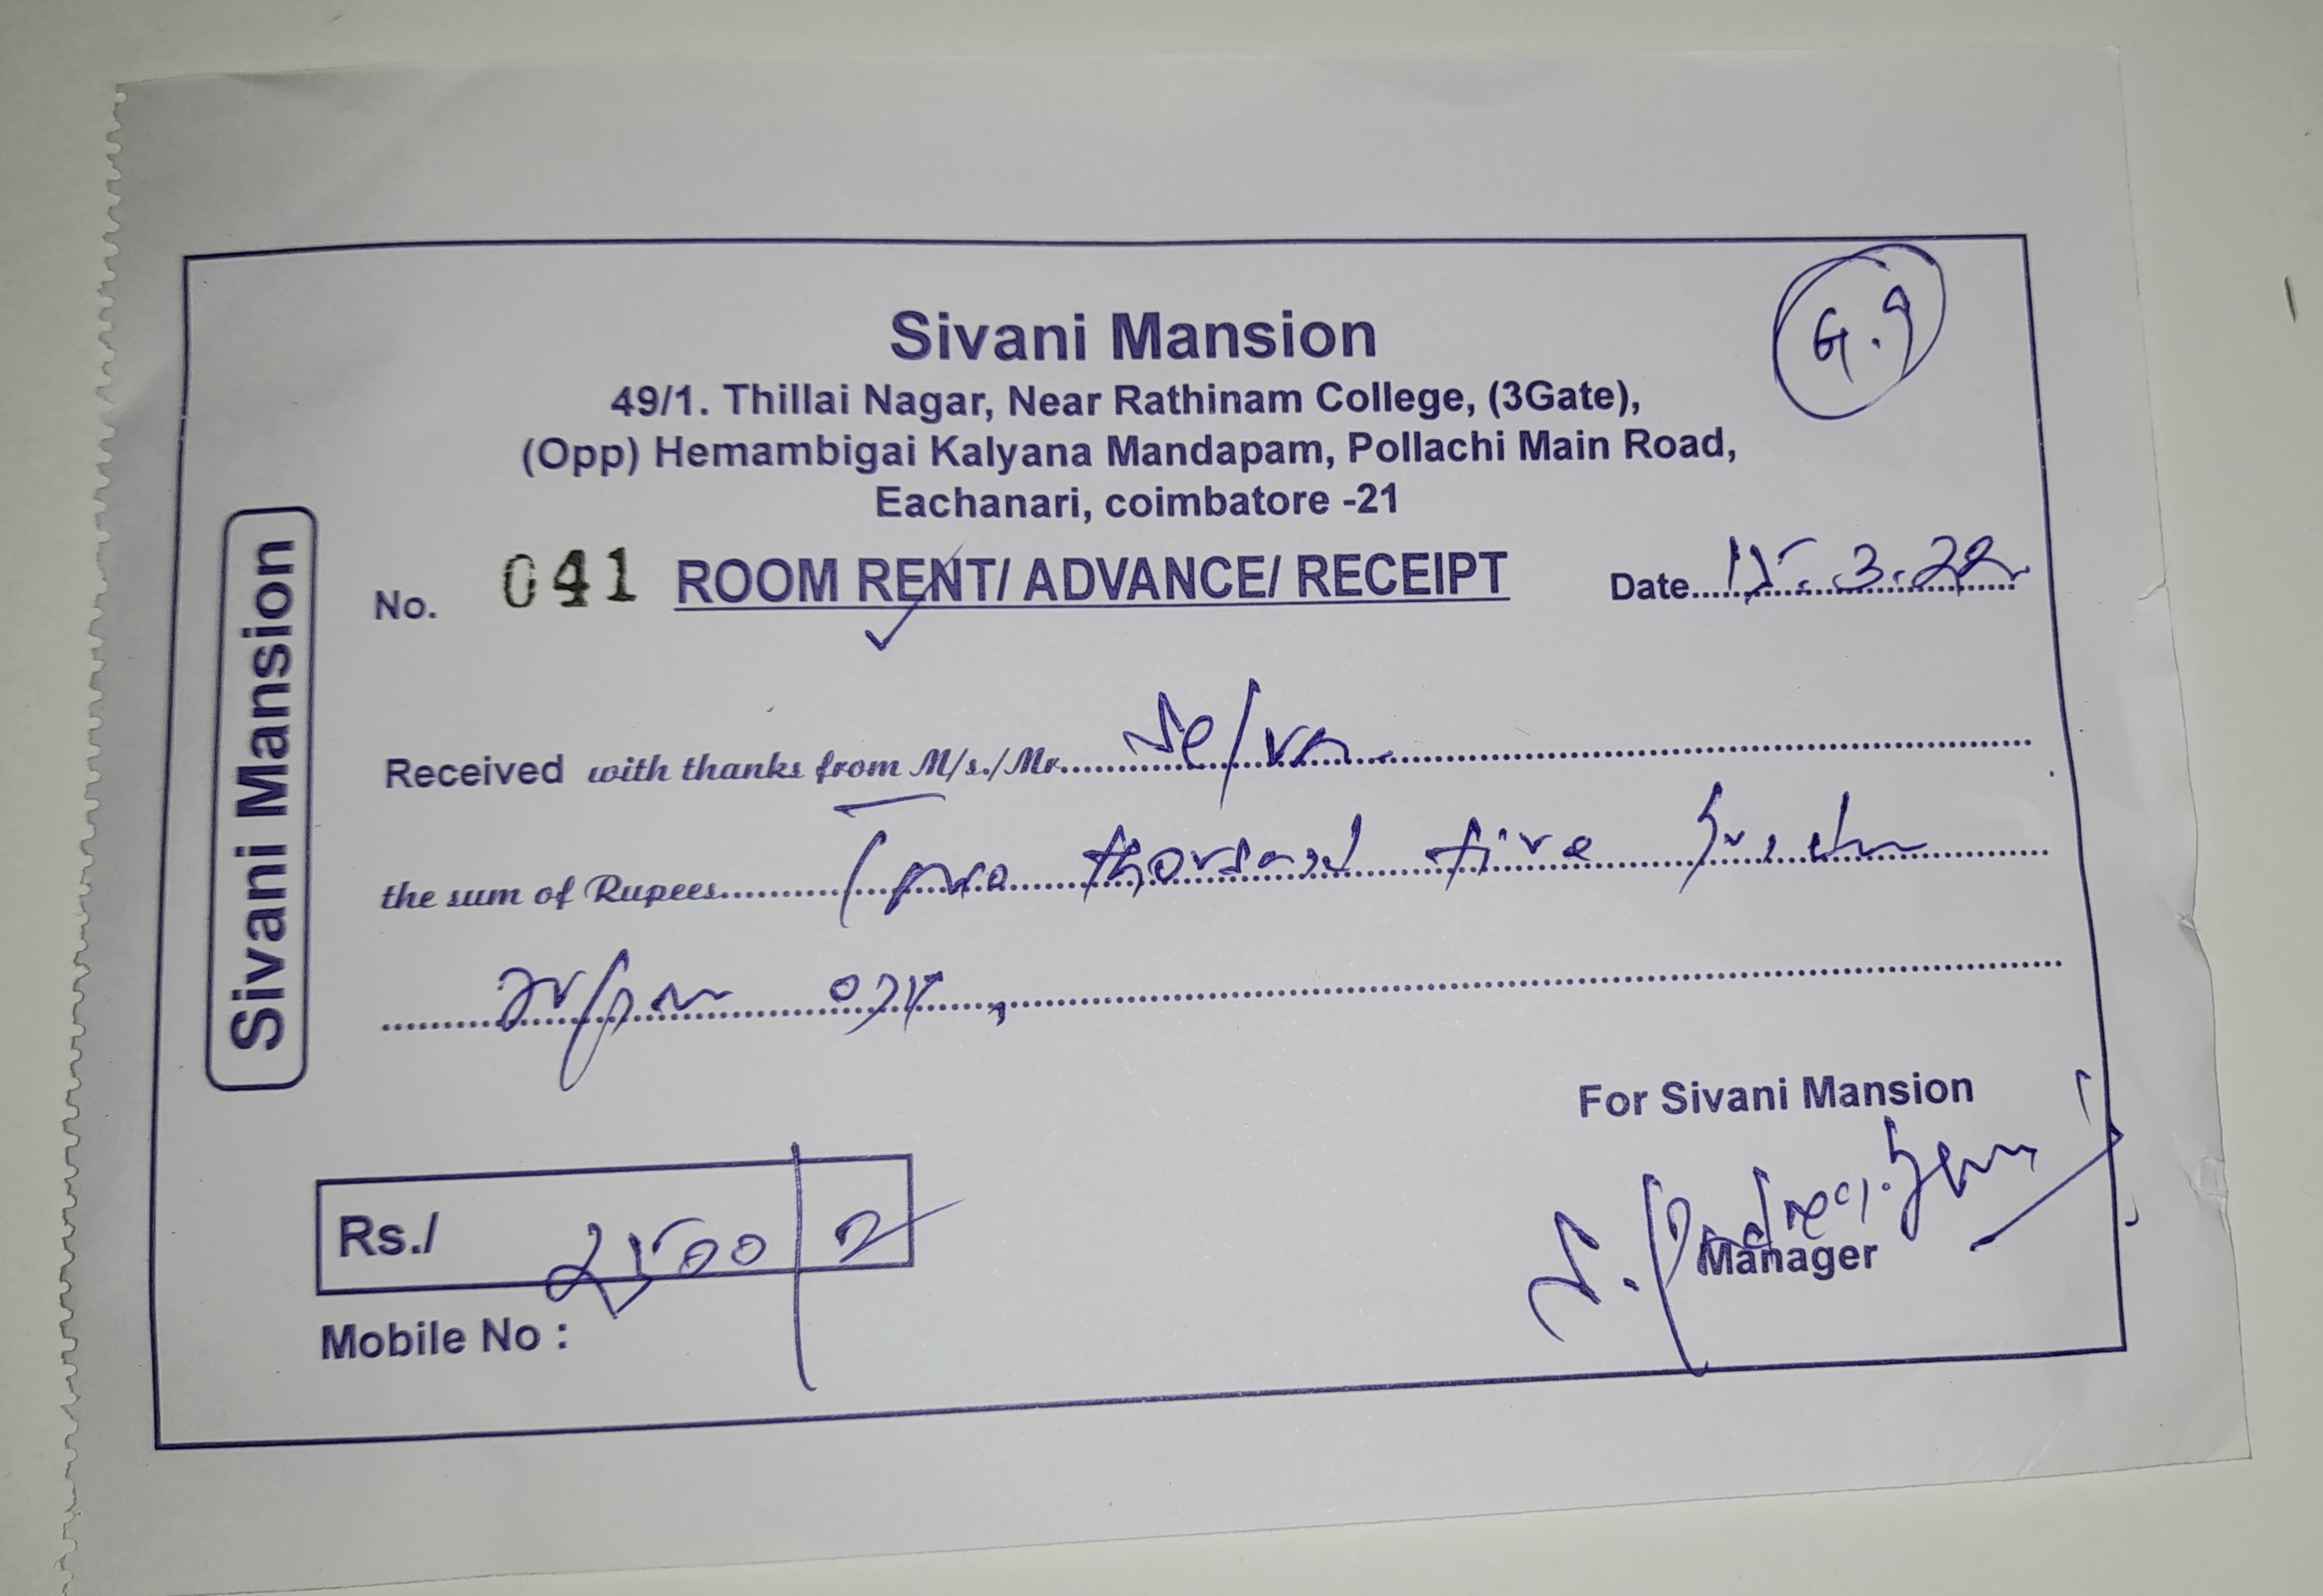 G.9
Sivani Mansion
49/1. Thillai Nagar, Near Rathinam College, (3Gate),
(Opp) Hemambigai Kalyana Mandapam, Pollachi Main Road,
Eachanari, coimbatore -21
No. 041 ROOM RENT/ ADVANCE/ RECEIPT Date 15.3.22
Received with thanks from M/s./Mr. Selva
the sum of Rupees Two thousand five
only
For Sivani Mansion
Rs./ 2500
Manager
Mobile No :
Sivani Mansion